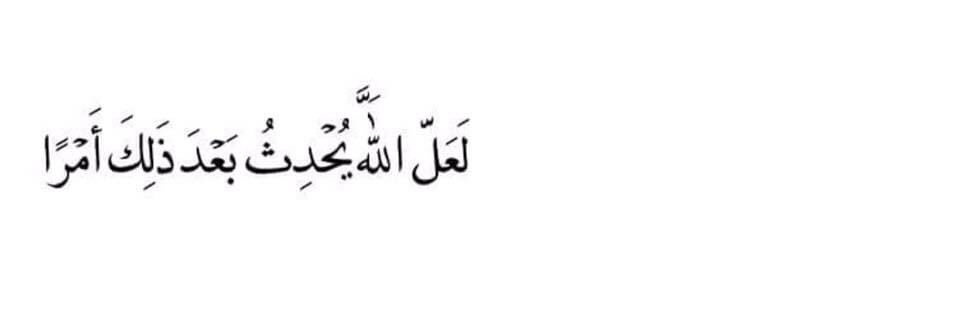 لَعَلّ اللَّهَ يُحْدِثُ بَعْدَ ذَلِكَ أَمْرًا